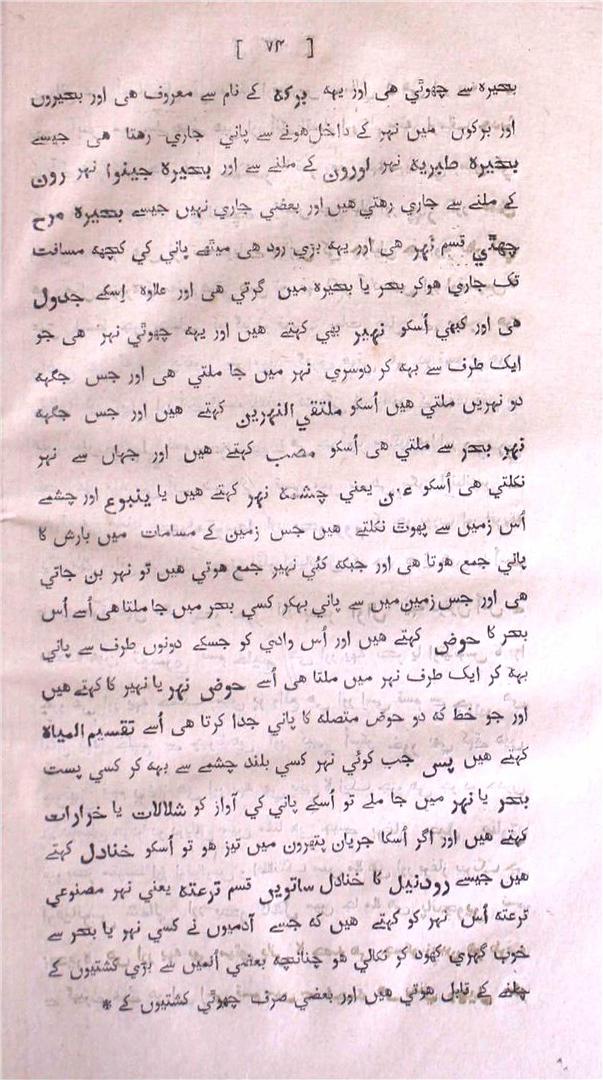 [ ٧٣ ]
بحیرہ سے چھوٹي هی اور یهه برکه کے نام سے معروف هی اور بحیروں
اور برکوں میں نہر کے داخل هونے سے پاني جاري رهتا هی جیسے
بحیرہ طبریه نہر اورون کے ملنے سے اور بحیرہ جینوا نہر رون
کے ملنے سے جاري رهتي هیں اور بعضي جاري نہیں جیسے بحیرہ مرح
چھٹي قسم نہر هی اور یهه بڑي رود هی میٹھے پاني کي کچهه مسافت
تک جاري هوکر بحر یا بحیرہ میں گرتي هی اور علاوہ اِسکے جدول
هی اور کبھي اُسکو نہیر بھي کہتے هیں اور یهه چھوٹي نہر هی جو
ایک طرف سے بهه کر دوسري نہر میں جا ملتي هی اور جس جگهه
دو نہریں ملتي هیں اُسکو ملتقي النہرین کہتے هیں اور جس جگهه
نہر بحر سے ملتي هی اُسکو مصب کہتے هیں اور جہاں سے نہر
نکلتي هی اُسکو یعني چشمه نہر کہتے هیں یا ینبوع اور چشمے
اُس زمین سے پھوٹ نکلتے هیں جس زمین کے مسامات میں بارش کا
پاني جمع هوتا هی اور جبکه کئي نہیر جمع هوتي هیں تو نہر بن جاتي
هی اور جس زمین میں سے پاني بہکر کسي بحر میں جا ملتا هی اُسے اُس
بحر کا حوض کہتے هیں اور اُس وادي کو جسکے دونوں طرف سے پاني
بهه کر ایک طرف نہر میں ملتا هی اُسے حوض نہر یا نہیر کا کہتے هیں
اور جو خط که دو حوض متصله کا پاني جدا کرتا هی اُسے تقسیم المیاہ
کہتے هیں پس جب کوئي نہر کسي بلند چشمے سے بهه کر کسي پست
بحر یا نہر میں جا ملے تو اُسکے پاني کي آواز کو شلالات یا خرارات
کہتے هیں اور اگر اُسکا جریان پتھروں میں تیز هو تو اُسکو خنادل کہتے
هیں جیسے رودنیل کا خنادل ساتویں قسم ترعته یعني نہر مصنوعي
ترعته اُس نہر کو کہتے هیں که جسے آدمیوں نے کسي نہر یا بحر سے
خوب گہري کھود کر نکالي هو چنانچه بعضي اُنمیں سے بڑي کشتیوں کے
چلنے کے قابل هوتي هیں اور بعضي صرف چھوٹي کشتیوں کے *